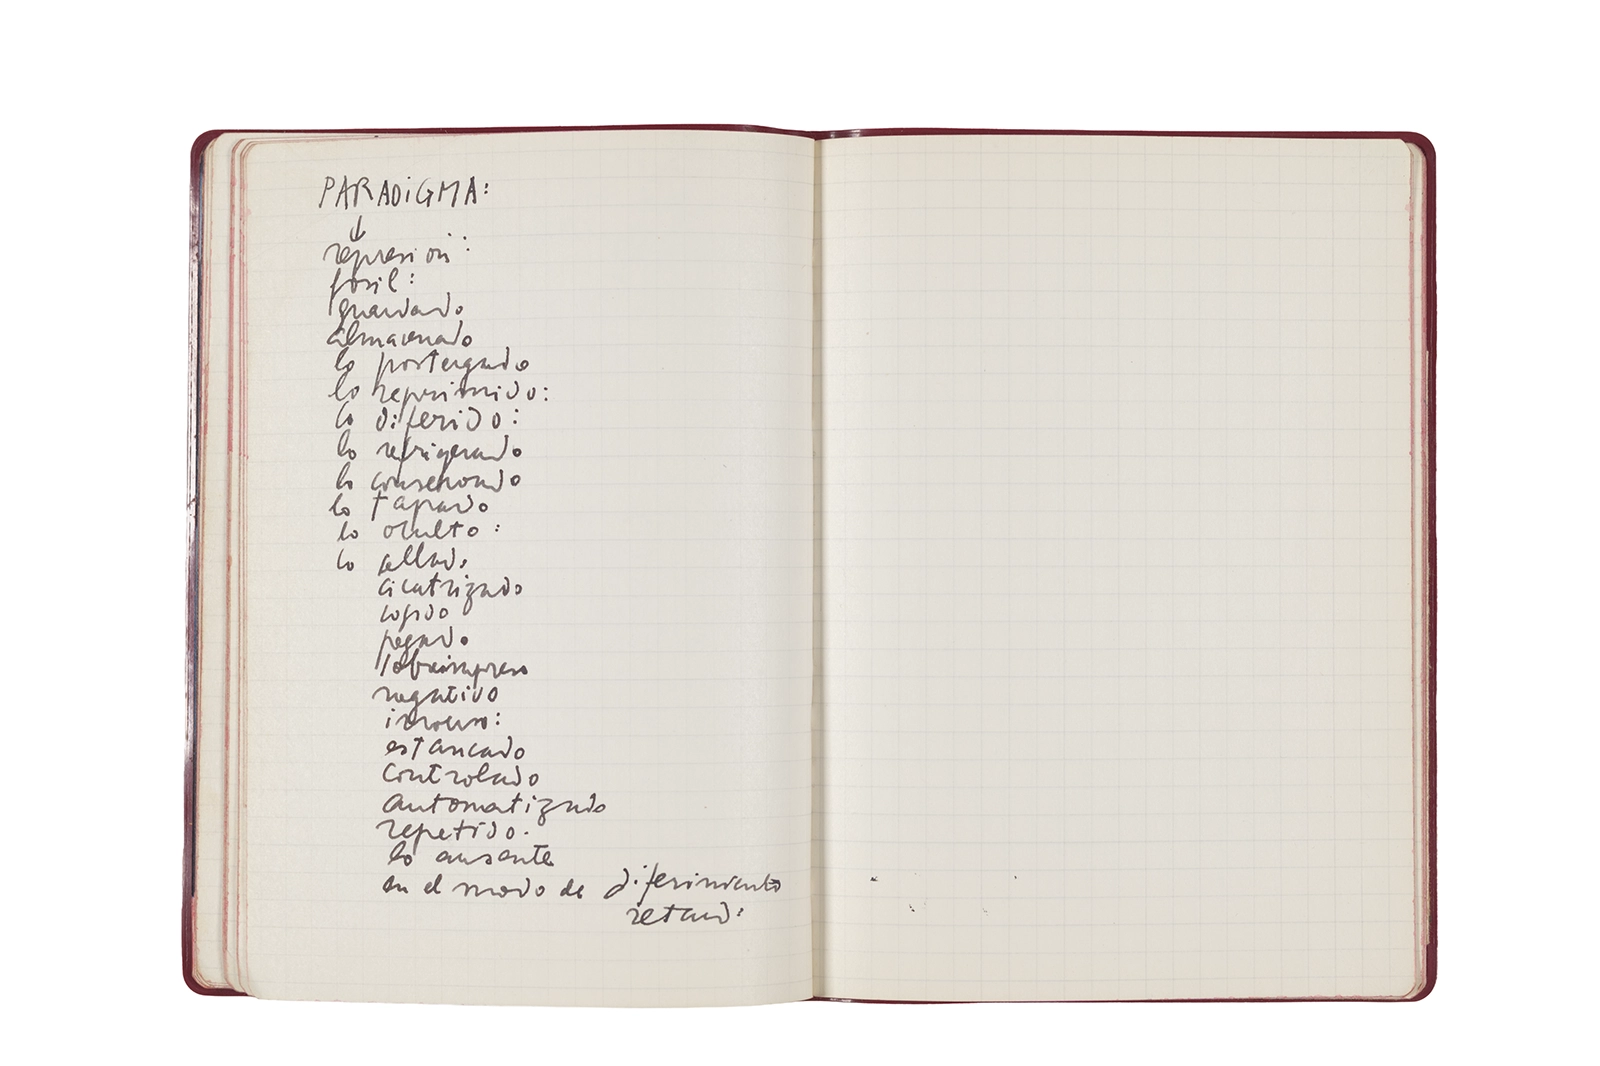 PARADiGMA:
↓
represion:
fosil:
guardado
almacenado
lo postergado
lo reprimido:
lo diferido:
lo refrigerado
lo conservado
lo tapado
lo oculto:
lo sellado
cicatrizado
copido
pegado
sobreimpreso
negativo
inverso:
estancado
controlado
automatizado
repetido.
lo ausente
en el modo de diferimiento
retard: